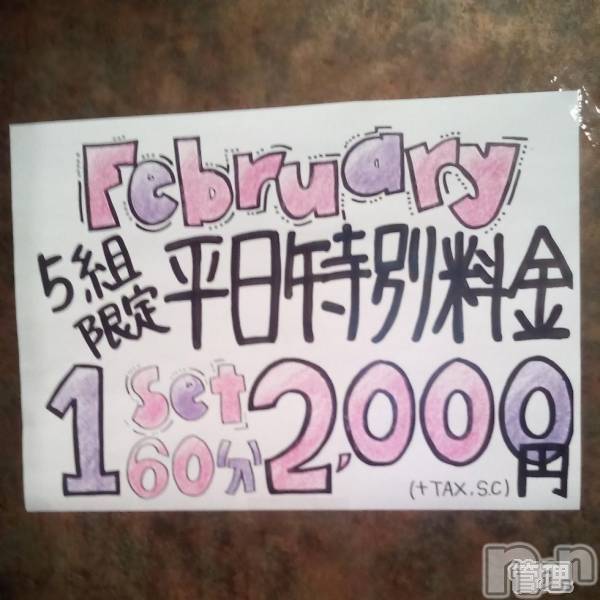 February
5組限定 平日特別料金
1 Set 60分 2,000円
(+TAX.S.C)
管理